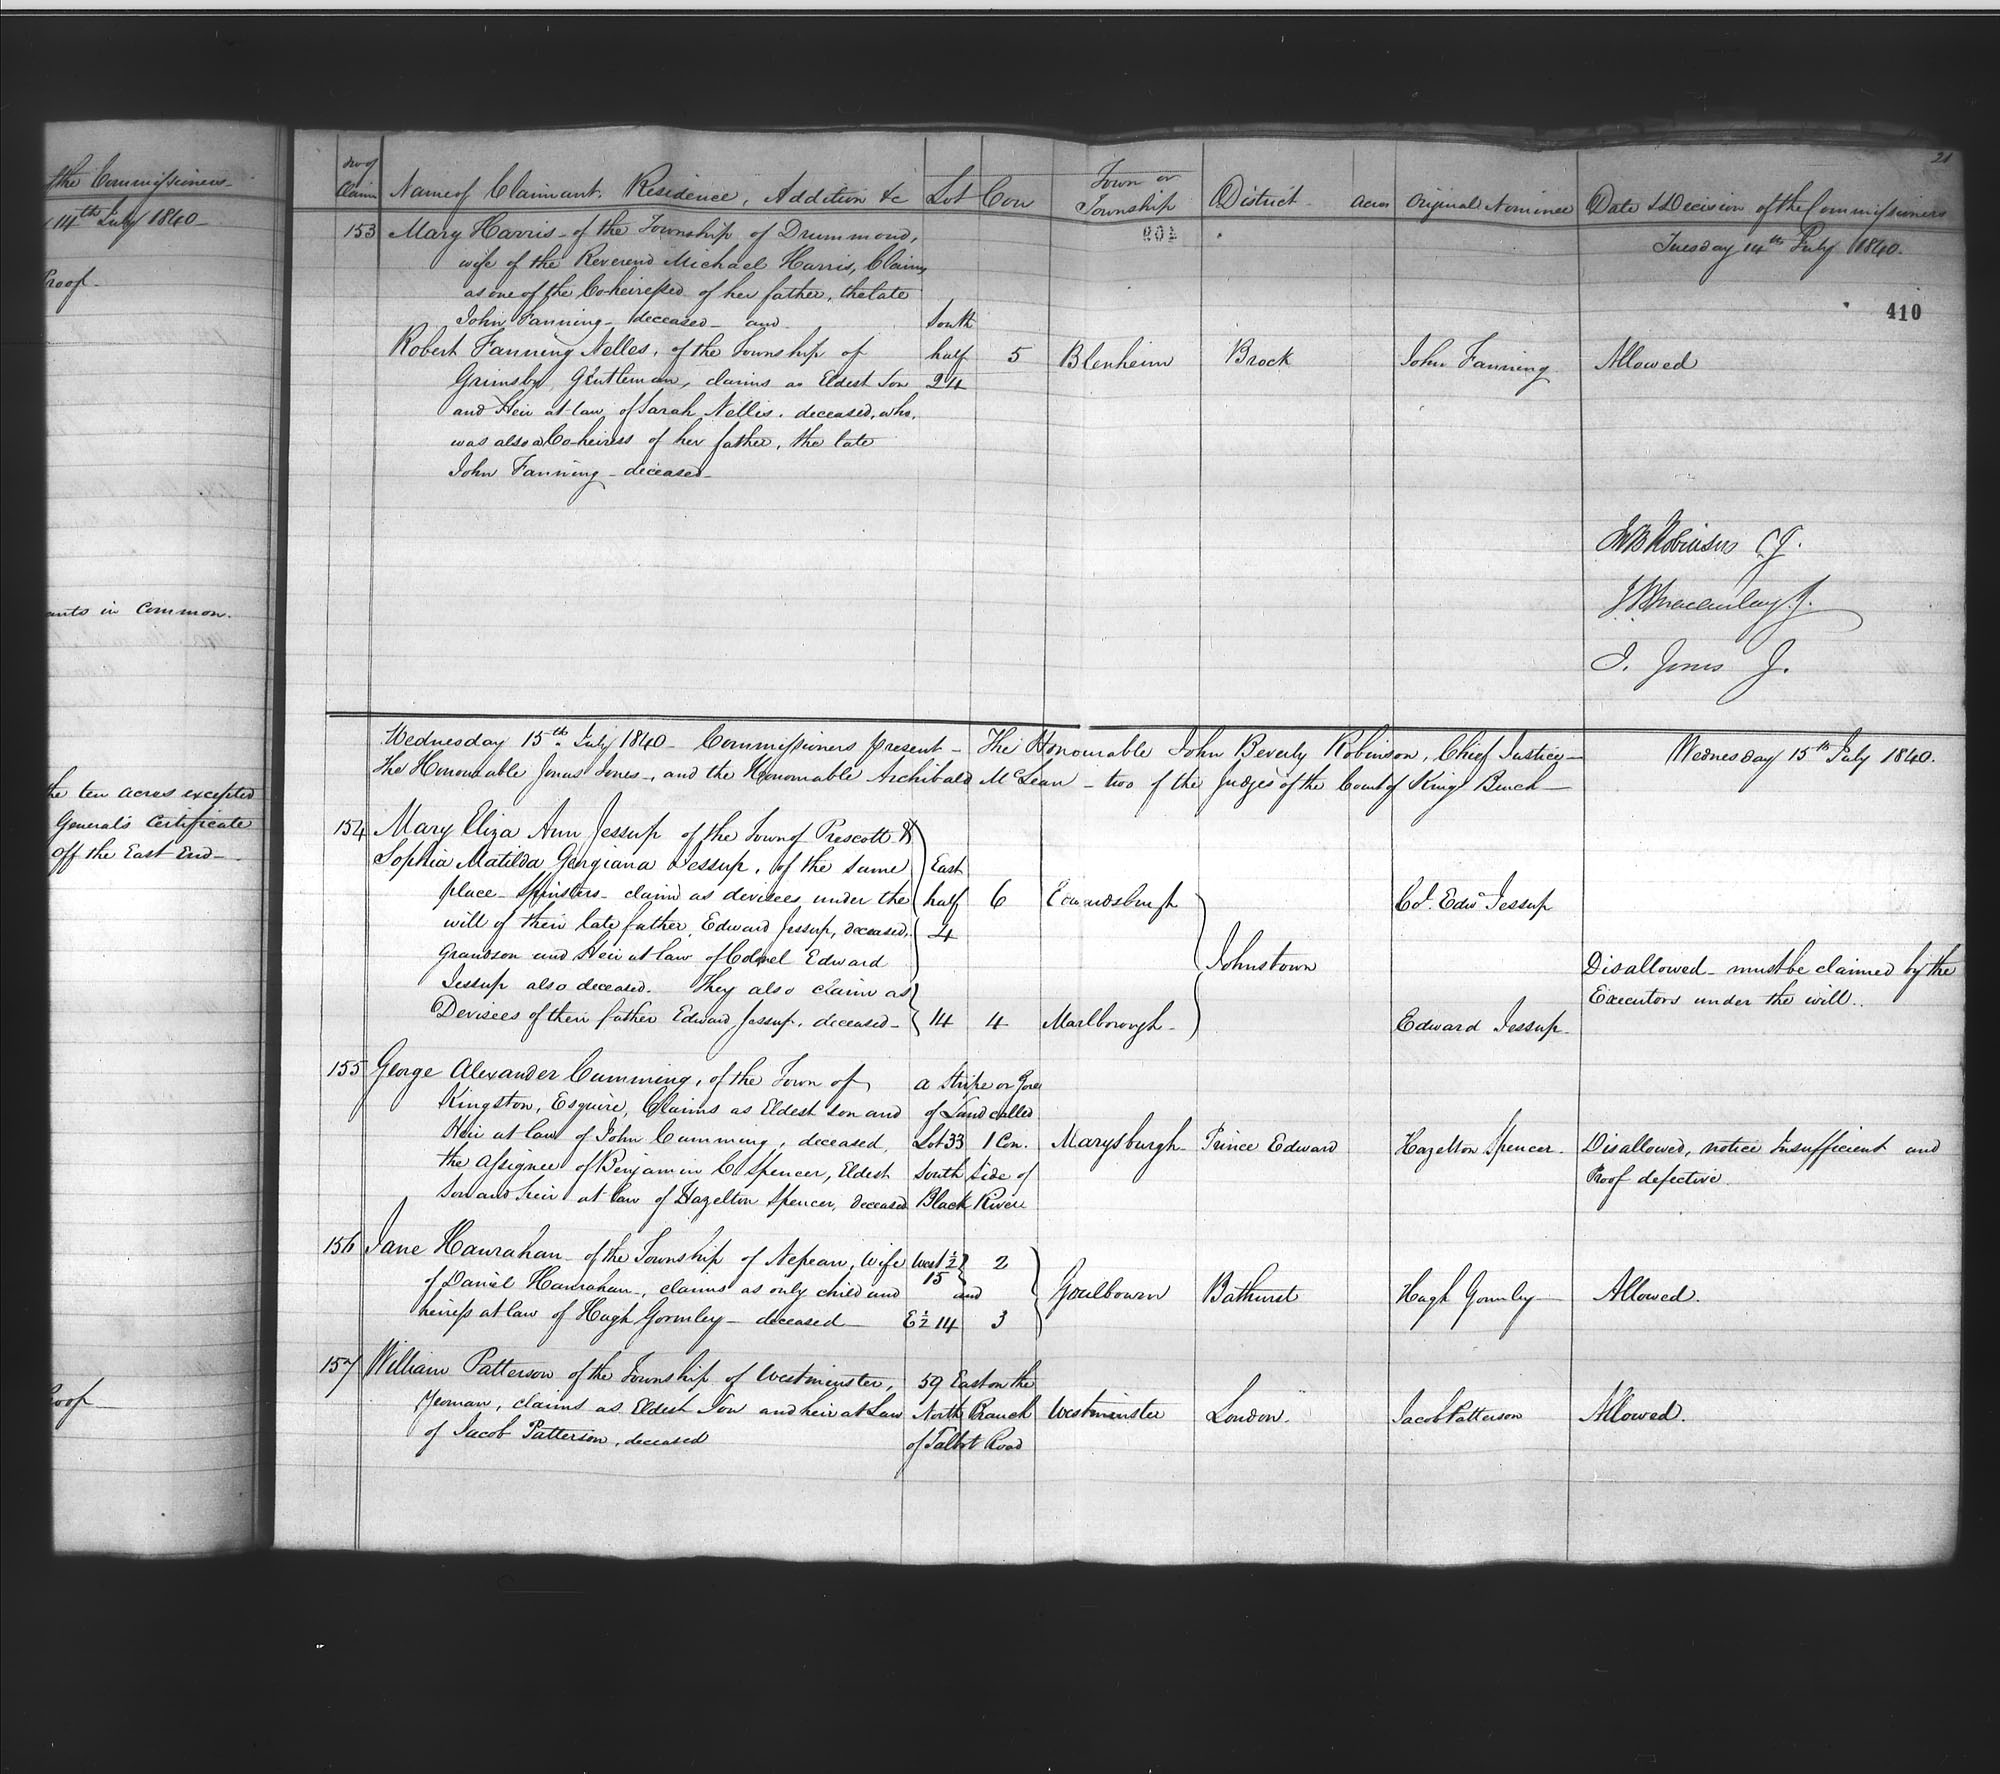 the Commissioners
14th July 1840
Proof.
ants in Common.
the ten acres excepted
General's Certificate
off the East End
Proof
21
No of
Claim Name of Claimant. Residence, Addition &c Lot Con Town or Township District Acres Original Nominee Date & Decision of the Commissioners
Tuesday 14th July 1840.
410
153 Mary Harris of the Township of Drummond,
wife of the Reverend Michael Harris, Claims
as one of the Coheiresses of her father, the late
John Fanning deceased and South
Robert Fanning Nelles, of the Township of half 5 Blenheim Brock John Fanning Allowed
Grimsby, Gentleman, claims as Eldest Son 24
and Heir at law of Sarah Nellis, deceased, who,
was also a Coheiress of her father, the late
John Fanning deceased
J B Robinson CJ.
J B Macaulay J.
J. Jones J.
Wednesday 15th July 1840 Commissioners present The Honourable John Beverly Robinson, Chief Justice Wednesday 15th July 1840.
The Honourable Jonas Jones, and the Honourable Archibald McLean two of the Judges of the Court of Kings Bench
154 Mary Eliza Ann Jessup of the Town of Prescott &
Sophia Matilda Georgiana Jessup, of the same East
place Spinsters claim as devisees under the half 6 Edwardsburgh Col. Edwd Jessup
will of their late father, Edward Jessup, deceased, 4
Grandson and Heir at law of Colonel Edward Johnstown Disallowed must be claimed by the
Jessup also deceased. They also claim as Executors under the will.
Devisees of their father Edward Jessup, deceased 14 4 Marlborough Edward Jessup
155 George Alexander Cumming, of the Town of a Stripe or Gore
Kingston, Esquire, Claims as Eldest son and of Land called
Heir at law of John Cumming, deceased, Lot 33 1 Con. Marysburgh Prince Edward Hazelton Spencer. Disallowed, notice Insufficient and
the Assignee of Benjamin C Spencer, Eldest South Side of Proof defective.
Son and heir at law of Hazelton Spencer, deceased Black River
156 Jane Hanrahan of the Township of Nepean, Wife West ½ 2
of Daniel Hanrahan, claims as only child and 15 and Goulbourn Bathurst Hugh Gormley Allowed.
heiress at law of Hugh Gormley deceased E ½ 14 3
157 William Patterson of the Township of Westminster, 59 East on the
Yeoman, claims as Eldest Son and heir at Law North Branch Westminster London. Jacob Patterson Allowed.
of Jacob Patterson, deceased of Talbot Road